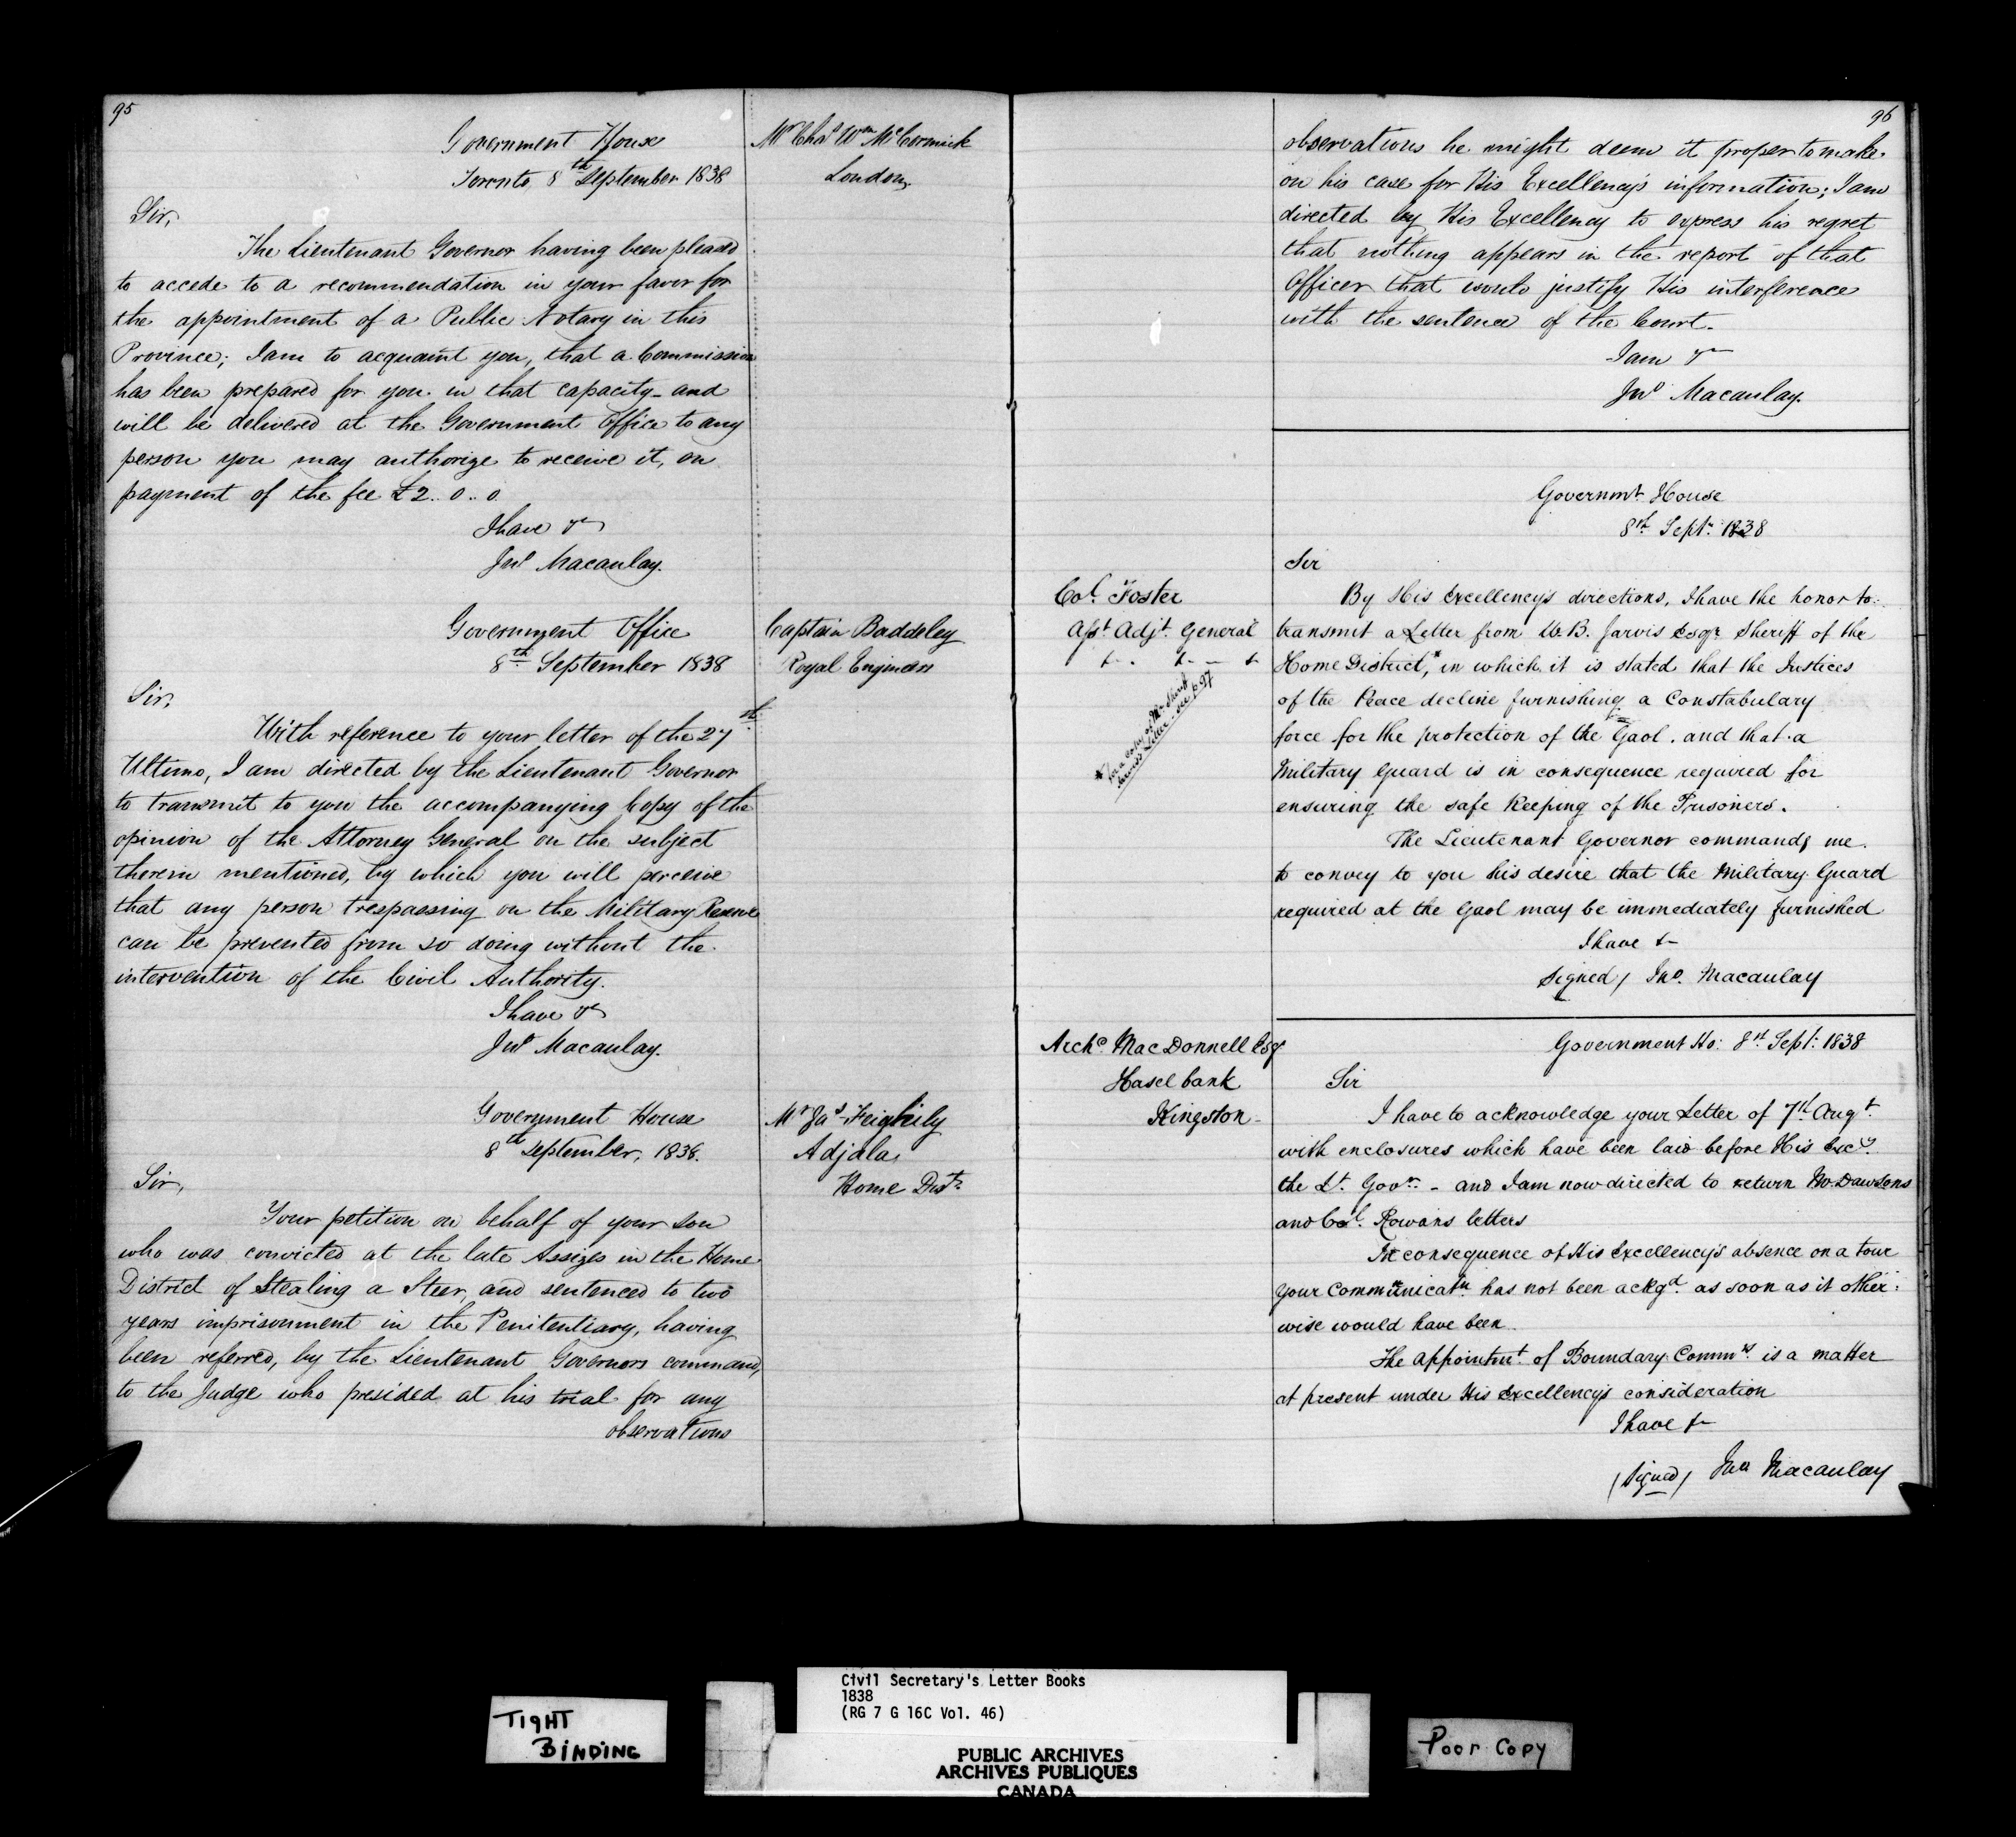 95
Government House
Toronto 8th September 1838
Mr Chas Wm McCormick
London,
Sir,
The Lieutenant Governor having been pleased
to accede to a recommendation in your favor for
the appointment of a Public Notary in this
Province; I am to acquaint you, that a Commission
has been prepared for you in that capacity and
will be delivered at the Government Office to any
person you may authorize to receive it, on
payment of the fee £2..0..0
I have &c
Jno Macaulay.
Government Office
8th September 1838
Captain Baddeley
Royal Engineers
Sir,
With reference to your letter of the 27th
Ultimo, I am directed by the Lieutenant Governor
to transmit to you the accompanying Copy of the
opinion of the Attorney General on the subject
therein mentioned, by which you will perceive
that any person trespassing on the Military Reserve
can be prevented from so doing without the
intervention of the Civil Authority.
I have &c
Jno Macaulay.
Government House
8th September, 1838.
Mr Jas Feighily
Adjala,
Home Dist.
Sir,
Your petition on behalf of your son
who was convicted at the late Assizes in the Home
District of Stealing a Steer, and sentenced to two
years imprisonment in the Penitentiary, having
been referred, by the Lieutenant Governors command,
to the Judge who presided at his trial for any
observations
96
observations he might deem it proper to make
on his case for His Excellency's information; I am
directed by His Excellency to express his regret
that nothing appears in the report of that
Officer that would justify His interference
with the sentence of the Court.
I am &c
Jno Macaulay.
Governmt House
8th Septr 1838
Col. Foster
Asst Adjt General
&. &. &
Sir
By His Excellency's directions, I have the honor to
transmit a Letter from W. B. Jarvis Esqr Sheriff of the
Home District,* in which it is stated that the Justices
of the Peace decline furnishing a Constabulary
force for the protection of the Gaol. and that a
Military Guard is in consequence required for
ensuring the safe keeping of the Prisoners.
* for a copy of Mr Sheriff
Jarvis's Letter see p 97
The Lieutenant Governor commands me
to convey to you his desire that the Military Guard
required at the Gaol may be immediately furnished
I have &c
Signed / Jno. Macaulay
Archd. MacDonnell Esqr
Hasel bank
Kingston
Government Ho: 8th Sept: 1838
Sir
I have to acknowledge your Letter of 7th Augt
with enclosures which have been laid before His Excy
the Lt. Govr. - and I am now directed to return Mr. Dawsons
and Col. Rowans letters
In consequence of His Excellency's absence on a tour
your Communicatn has not been ackgd as soon as it other:
wise would have been
The appointmt of Boundary Commrs is a matter
at present under His Excellency's consideration
I have &c
(Signed) Jno Macaulay
TIGHT
BINDING
Civil Secretary's Letter Books
1838
(RG 7 G 16C Vol. 46)
PUBLIC ARCHIVES
ARCHIVES PUBLIQUES
CANADA
Poor Copy